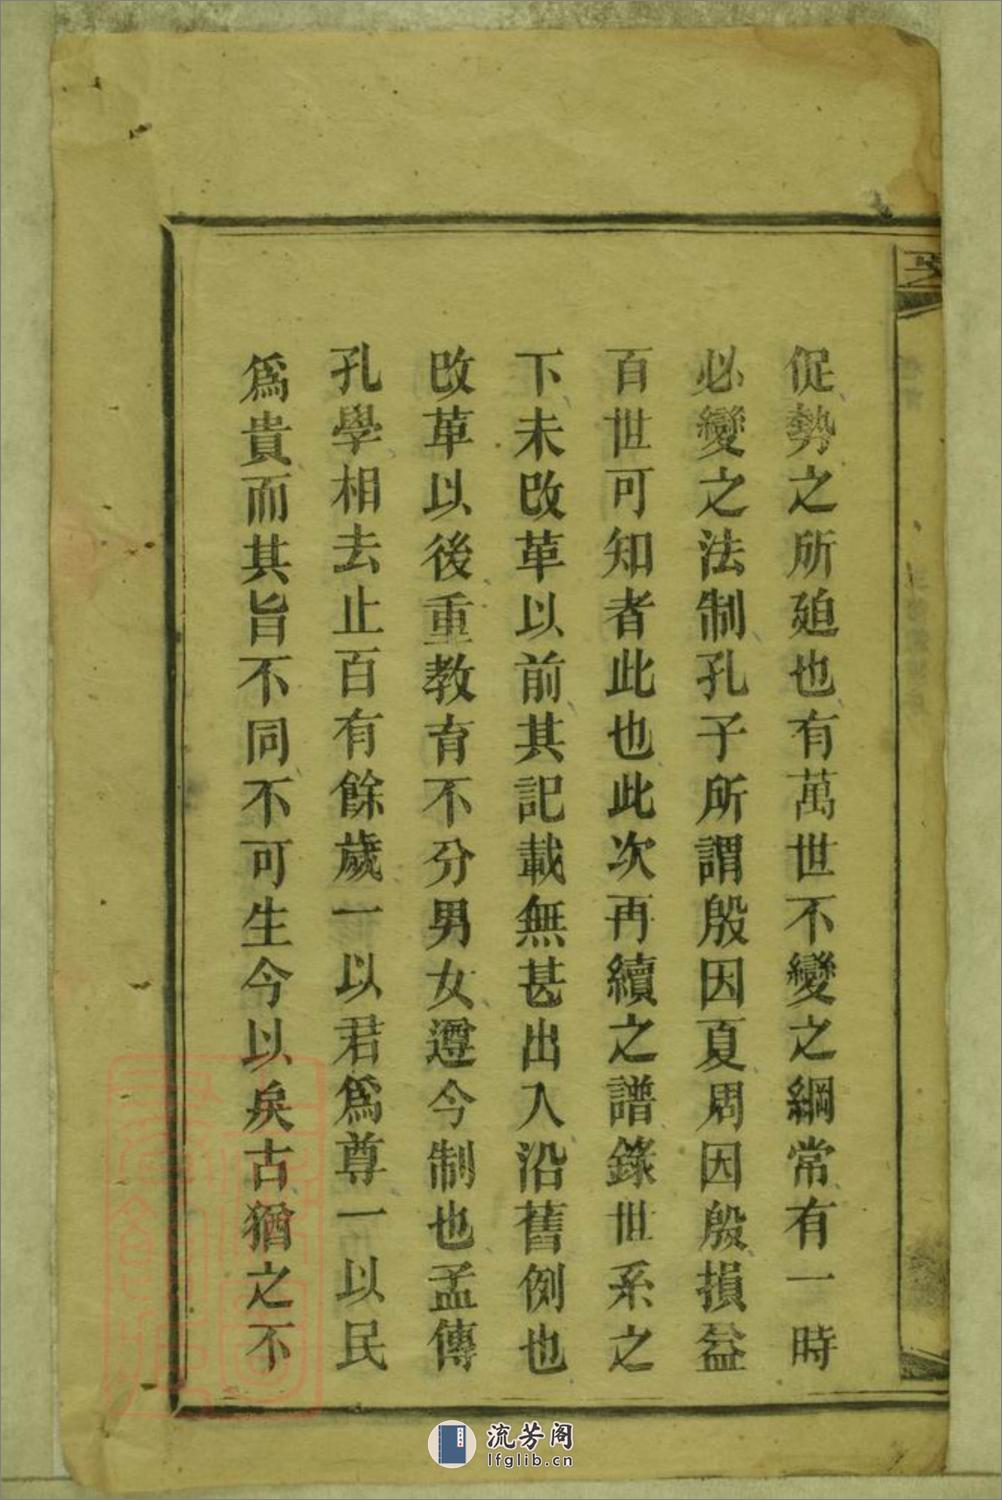 促勢之所廹也有萬世不變之綱常有一時
必變之法制孔子所謂殷因夏周因殷損益
百世可知者此也此次再續之譜錄世系之
下未改革以前其記載無甚出入沿舊例也
改革以後重教育不分男女遵今制也孟傳
孔學相去止百有餘歲一以君爲尊一以民
爲貴而其旨不同不可生今以矣古猶之不
流芳阁
lfglib.cn